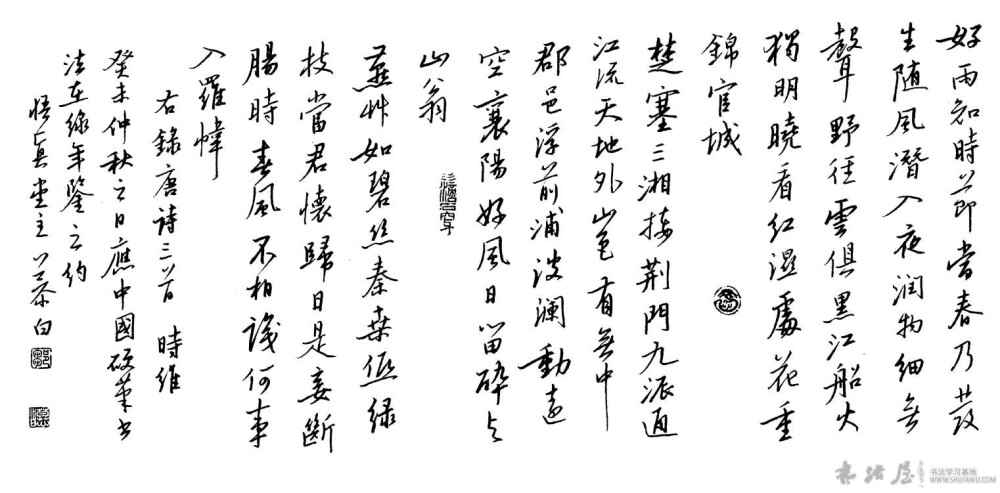 好雨知時節當春乃發
生随風潛入夜润物细無
聲野径雲俱黑江船火
獨明曉看红濕處花重
錦官城
楚塞三湘接荆門九派通
江流天地外山色有無中
郡邑浮前浦波澜動遠
空襄陽好風日留醉與
山翁
燕艸如碧丝秦桑低绿
枝當君懷歸日是妾斷
腸時春風不相識何事
入羅幃
右錄唐詩三首 時維
癸未仲秋之日應中國硬笔书
法在線年鑒之约
悟真堂主 慕白
书法屋
书法学习基地
WWW.SHUFAWU.COM